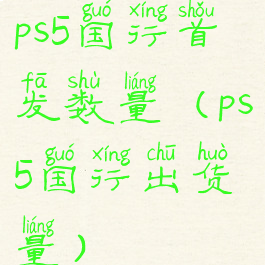 guó xíng shǒu
ps5国行首
fā shù liáng
发数量（ps
guó xíng chū huò
5国行出货
liáng
量）